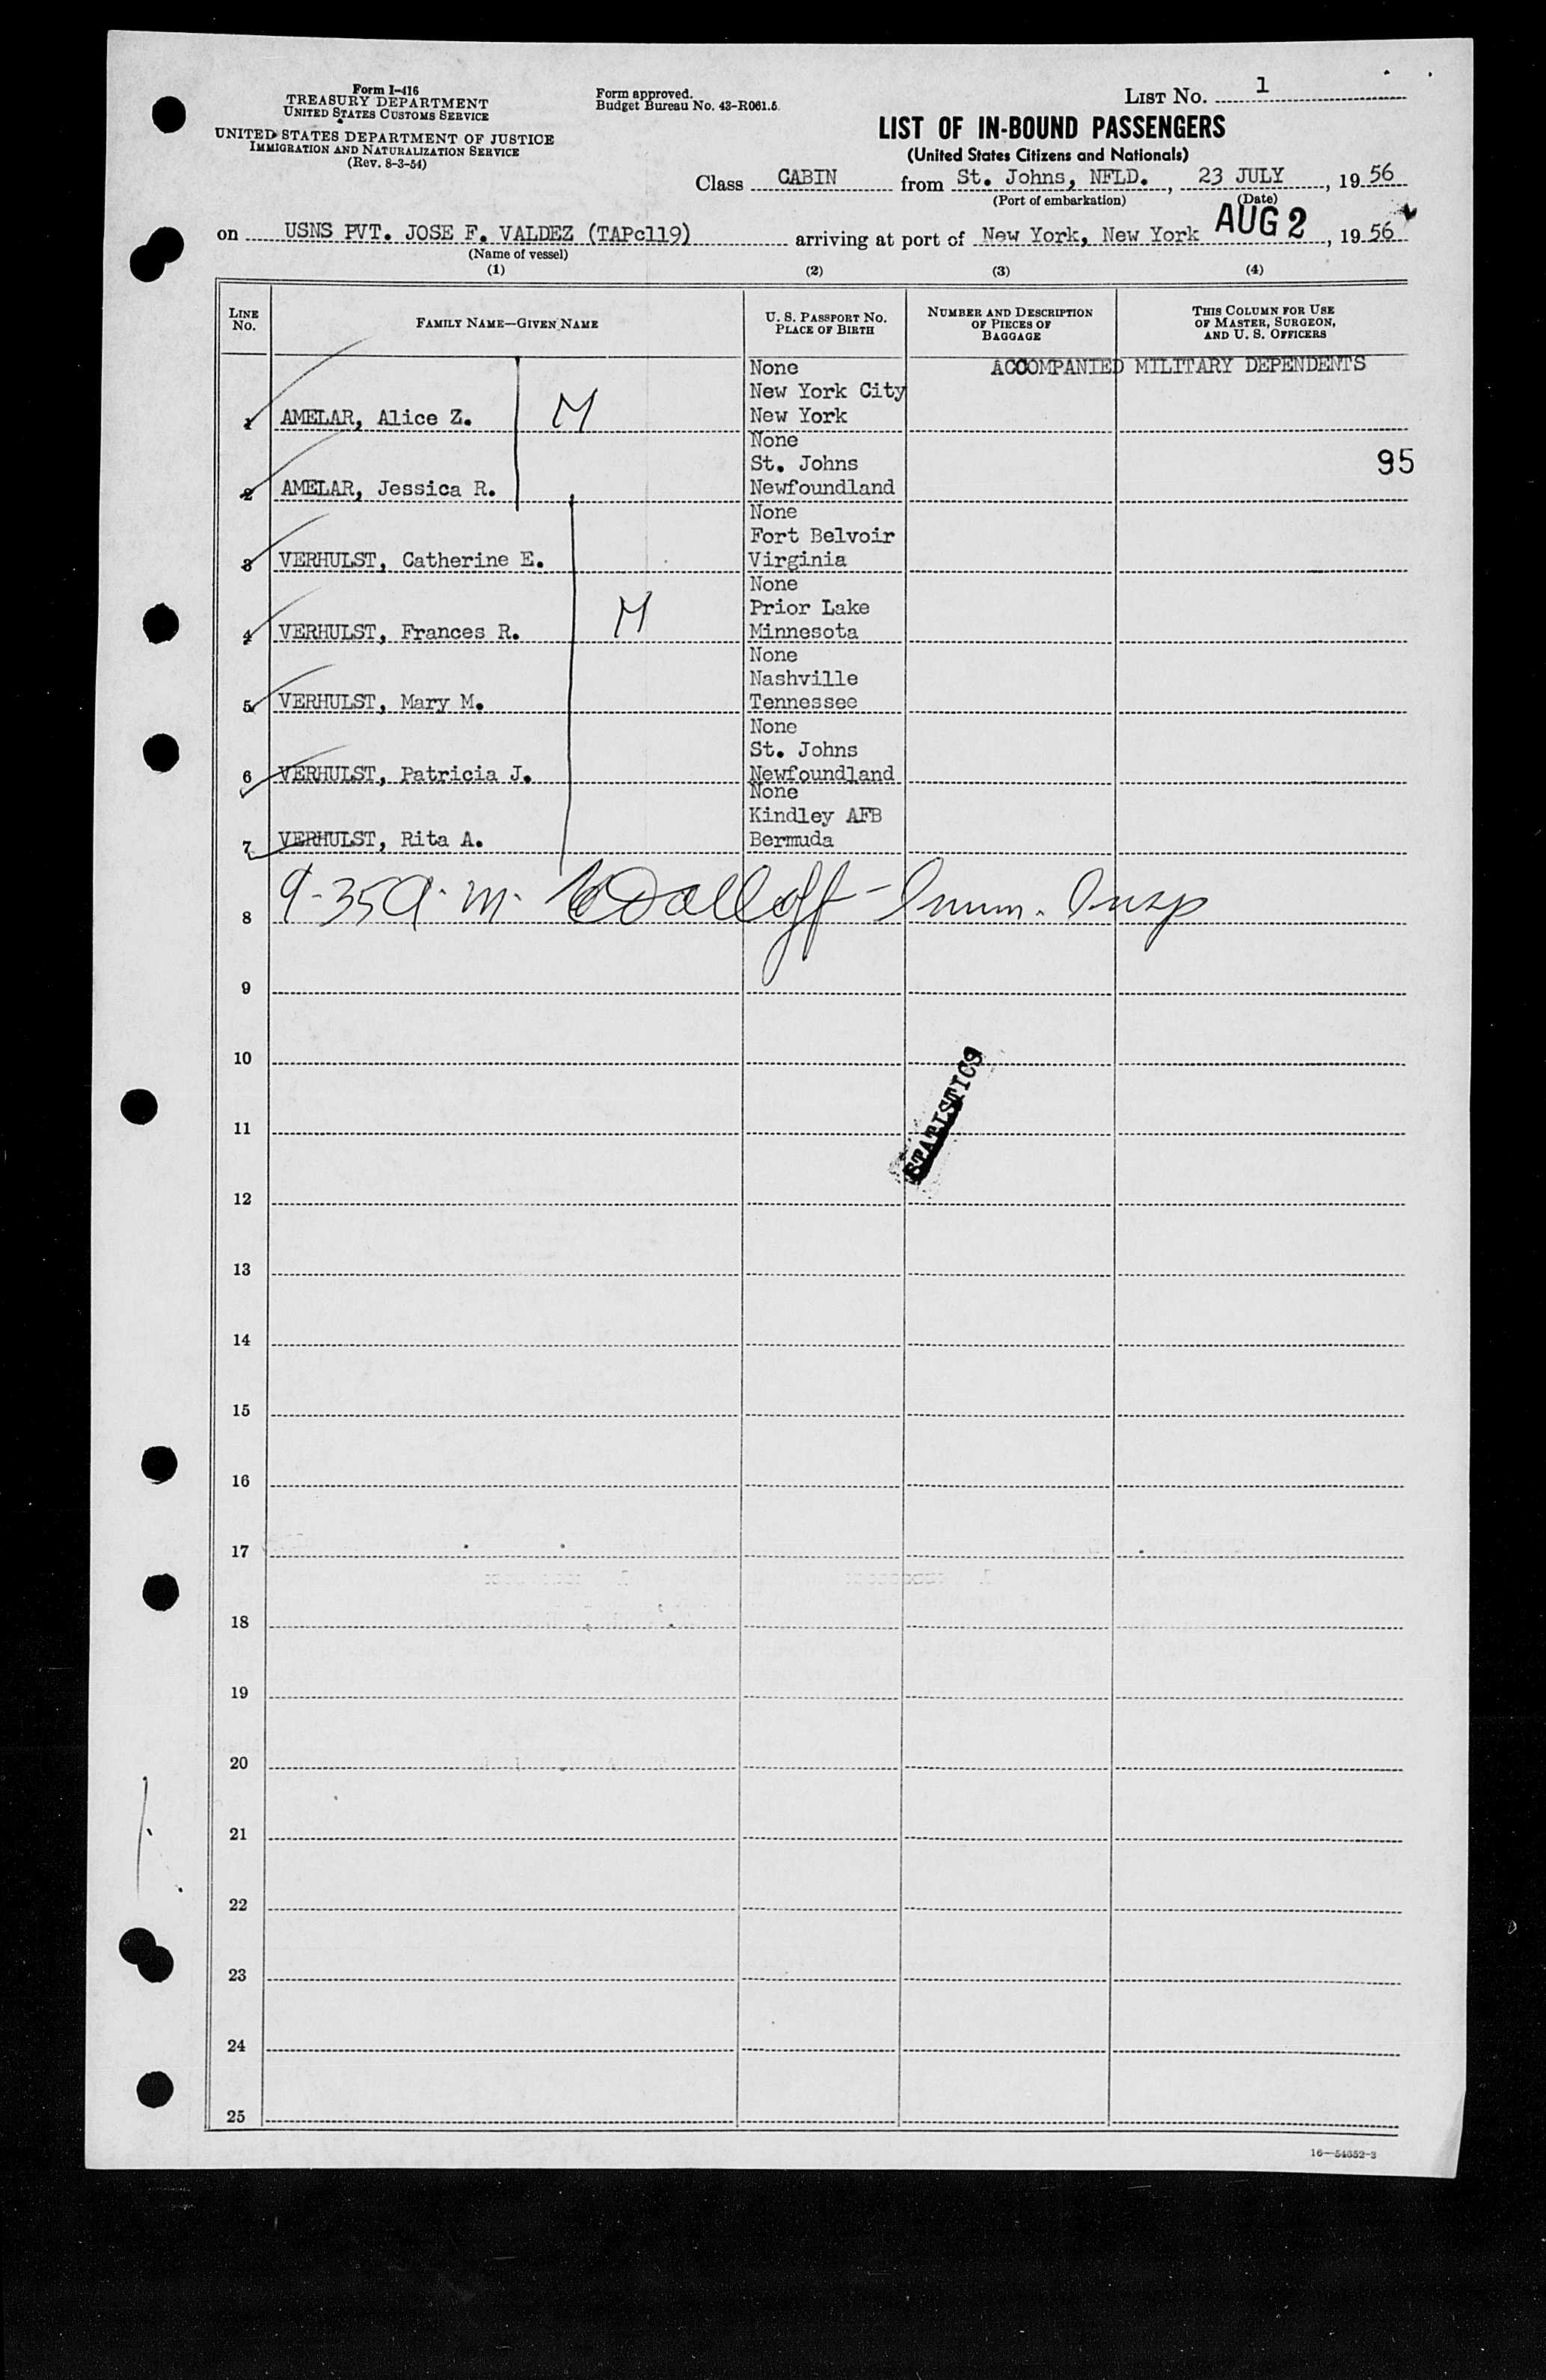 Form I-416
TREASURY DEPARTMENT
UNITED STATES CUSTOMS SERVICE
UNITED STATES DEPARTMENT OF JUSTICE
IMMIGRATION AND NATURALIZATION SERVICE
(Rev. 8-3-54)
Form approved.
Budget Bureau No. 43-R061.5
LIST NO. 1
LIST OF IN-BOUND PASSENGERS
(United States Citizens and Nationals)
Class CABIN from St. Johns, NFLD., 23 JULY, 1956
(Port of embarkation) (Date)
on USNS PVT. JOSE F. VALDEZ (TAPc119) arriving at port of New York, New York AUG 2, 1956
(Name of vessel)
(1) (2) (3) (4)
LINE NO. FAMILY NAME—GIVEN NAME U. S. PASSPORT NO. PLACE OF BIRTH NUMBER AND DESCRIPTION OF PIECES OF BAGGAGE THIS COLUMN FOR USE OF MASTER, SURGEON, AND U. S. OFFICERS
None ACCOMPANIED MILITARY DEPENDENTS
New York City
1 AMELAR, Alice Z. M New York
None
St. Johns 95
2 AMELAR, Jessica R. Newfoundland
None
Fort Belvoir
3 VERHULST, Catherine E. Virginia
None
Prior Lake
4 VERHULST, Frances R. M Minnesota
None
Nashville
5 VERHULST, Mary M. Tennessee
None
St. Johns
6 VERHULST, Patricia J. Newfoundland
None
Kindley AFB
7 VERHULST, Rita A. Bermuda
8 9-35 A.M. Imm. Insp
9
10
STATISTICS
11
12
13
14
15
16
17
18
19
20
21
22
23
24
25
16—54652-3